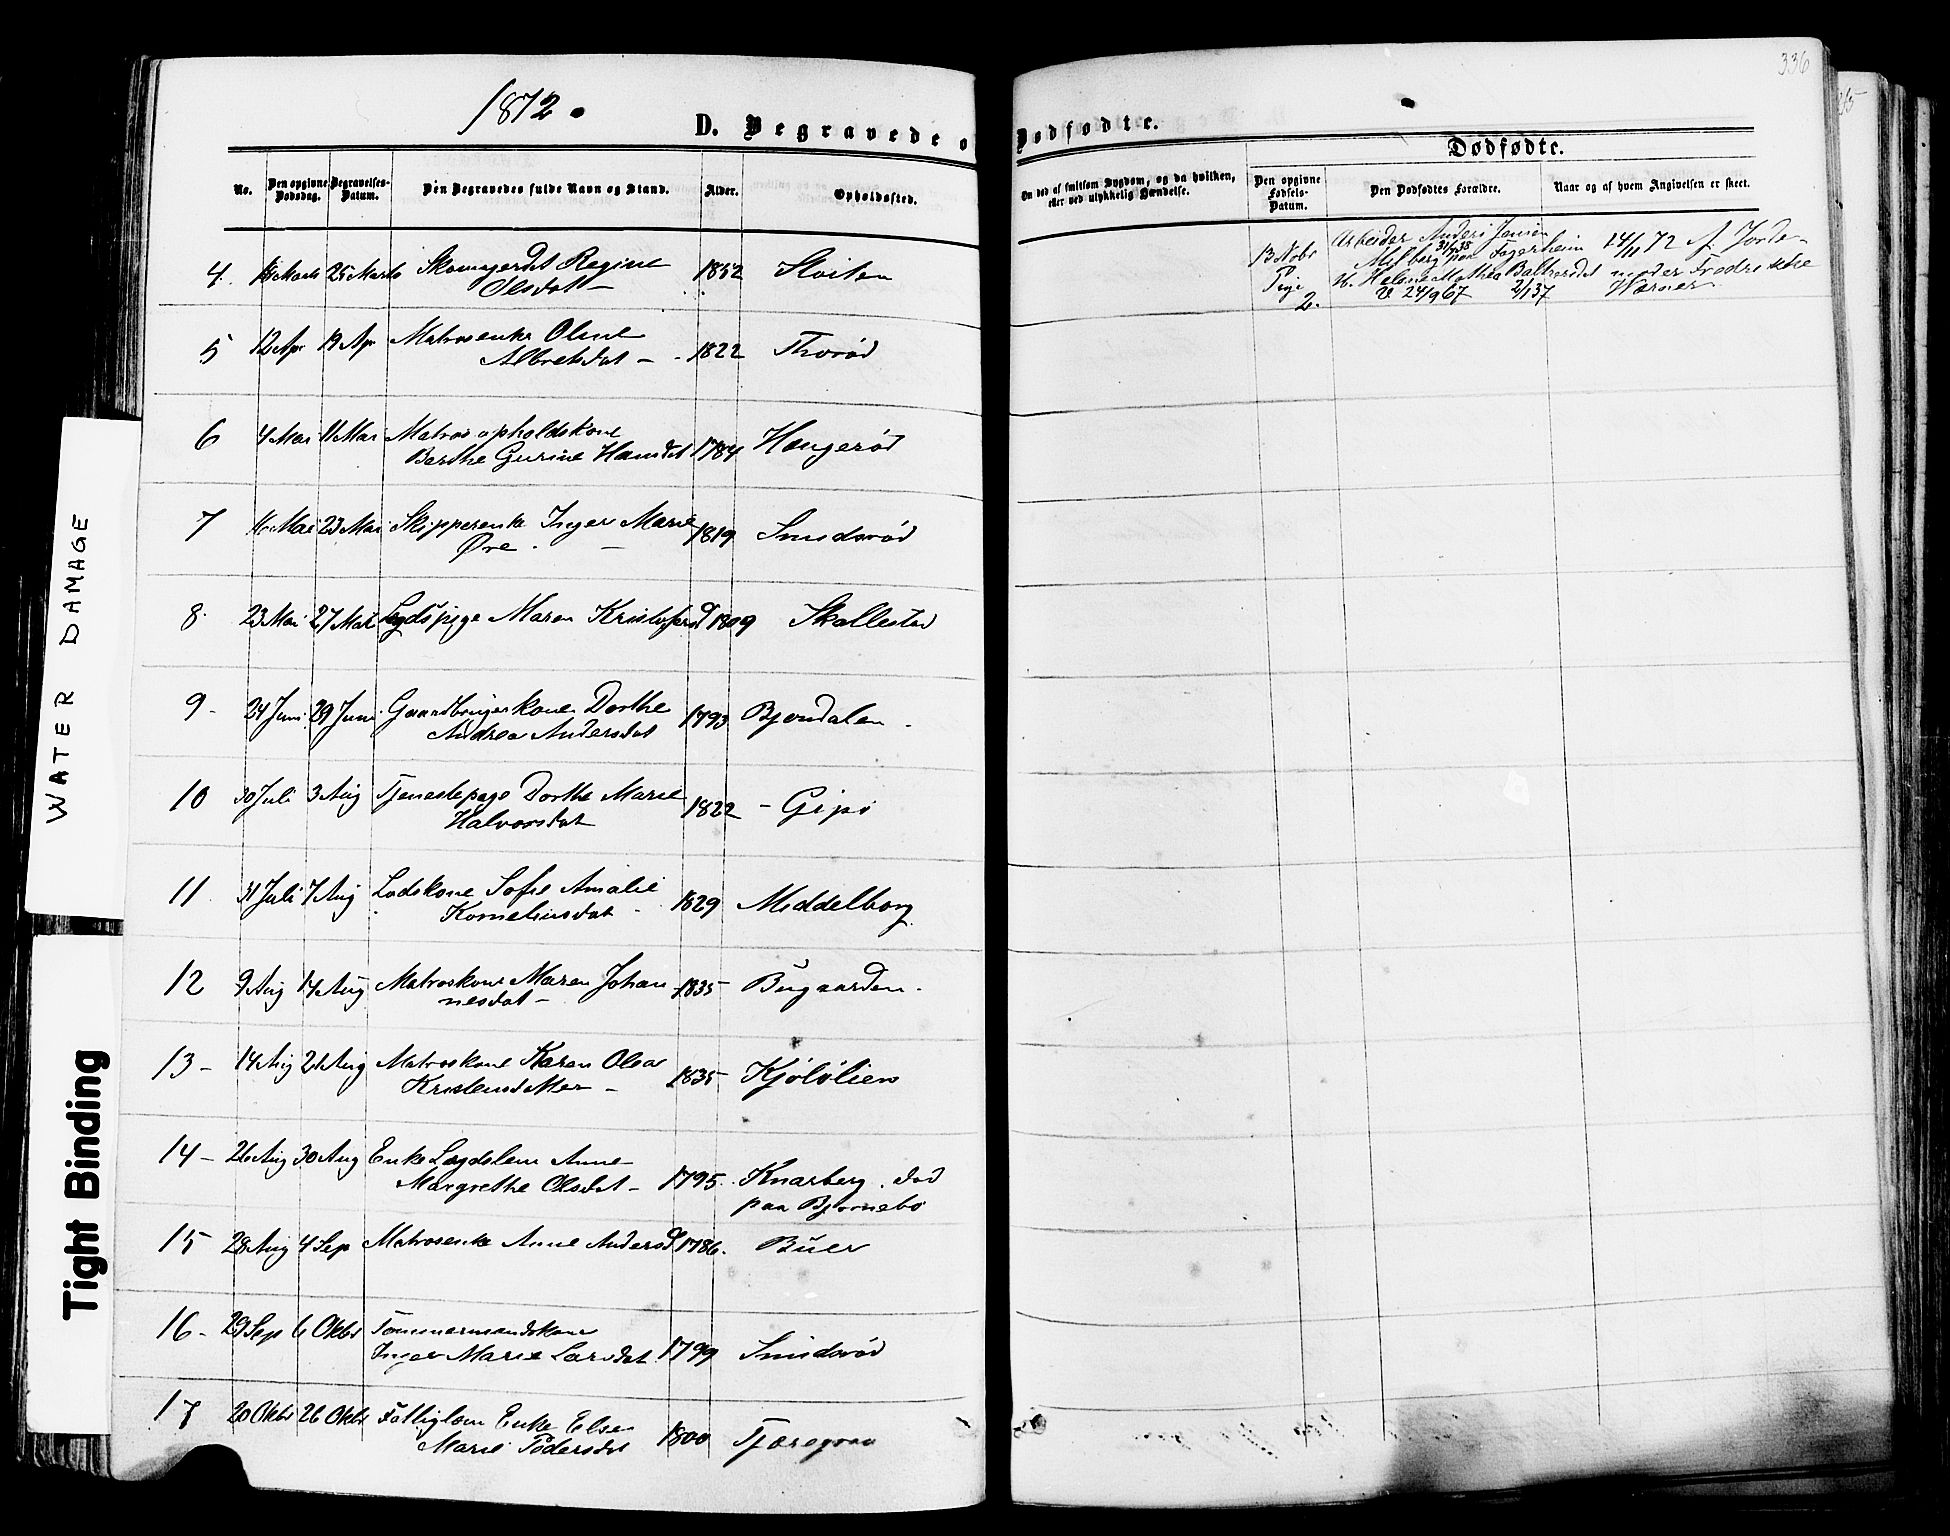 336
1872.
D. Begravede o
Dødfødte.
Dødfødte.
No.
Den opgivne Dødsdag.
Begravelses-Datum.
Den Begravedes fulde Navn og Stand.
Alder.
Opholdssted.
Om død af smitsom Sygdom, og da hvilken, eller ved ulykkelig Hændelse.
Den opgivne Fødsels-Datum.
Den Dødfødtes Forældre.
Naar og af hvem Angivelsen er skeet.
4. Marts 25 Marts Regine 1852
Olsdat
13 Novbr Arbeider Anders Jensen 14/11 72 af Jorde-
Pige paa Fagerheim moder Fredrikke
2. V. 24/9 67 Werner
5 12 Apr 19 Apr Matrosenke Oline
Albretsdat - 1822 Thorød
6 4 Mai 11 Mai Matros opholdskone
Berthe Gurine Hansdat 1784 Haugerød
7 16 Mai 23 Mai Skipperenke Inger Marie 1819 Smidsrød
Øre. -
8. 23 Mai 27 Mai Lægdspige Maren Kristofersd 1809 Skallestad
9 - 24 Juni 29 Juni Gaardbrugerkone Dorthe 1793 Bjerndalen.
Andrea Andersdat
10 30 Juli 3 Aug Tjenestepige Dorthe Marie 1822 - Gipø
Halvorsdat
11 31 Juli 7 Aug Lodskone Sofie Amalie 1829 Middelborg
Korneliusdat
12 9 Aug 14 Aug Matroskone Maren Johan 1835 Bugaarden.
nesdat -
13 - 14 Aug 21 Aug Matroskone Karen Olea
Kristensdatter - 1835
14 - 26 Aug 30 Aug Enke Lægdslem Anne
Margrethe Olsdat - 1795. Knarberg. død
paa Bjørnebo
15 28 Aug 4 Sep Matrosenke Anne Andersd 1786. Buer
16 - 29 Sep 6 Oktbr Tømmermandskone
Inger Marie Larsdat 1799 Smidsrød
17 20 Oktbr 26 Oktbr Fattiglem Enke Else
Marie Pedersdat 1800
WATER DAMAGE
Tight Binding